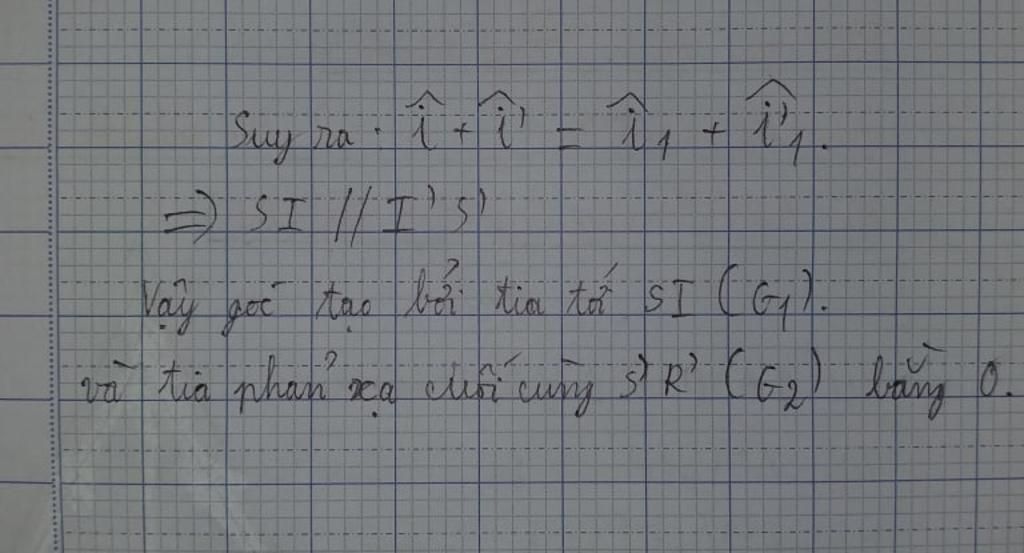 Suy ra: î + î' = î₁ + î'₁.
=> SI // I'S'
Vậy góc tạo bởi tia tới SI (G₁).
và tia phản xạ cuối cùng S'R' (G₂) bằng 0.